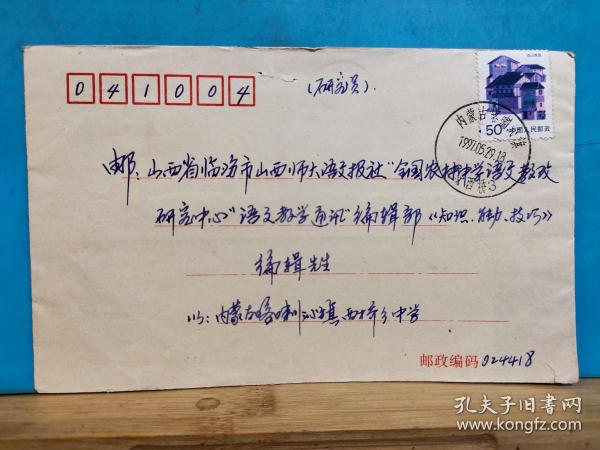 041004
(研究员).
50 中国人民邮政
内蒙古喀喇沁旗
1997.05.29.13
西桥3
邮:山西省临汾市山西师大语文报社"全国农村中学语文教改
研究中心"语文教学通讯"编辑部《知识.能力.技巧》
编辑先生
内蒙古喀喇沁旗西桥乡中学
邮政编码 024418
孔夫子旧书网
www.kongfz.com